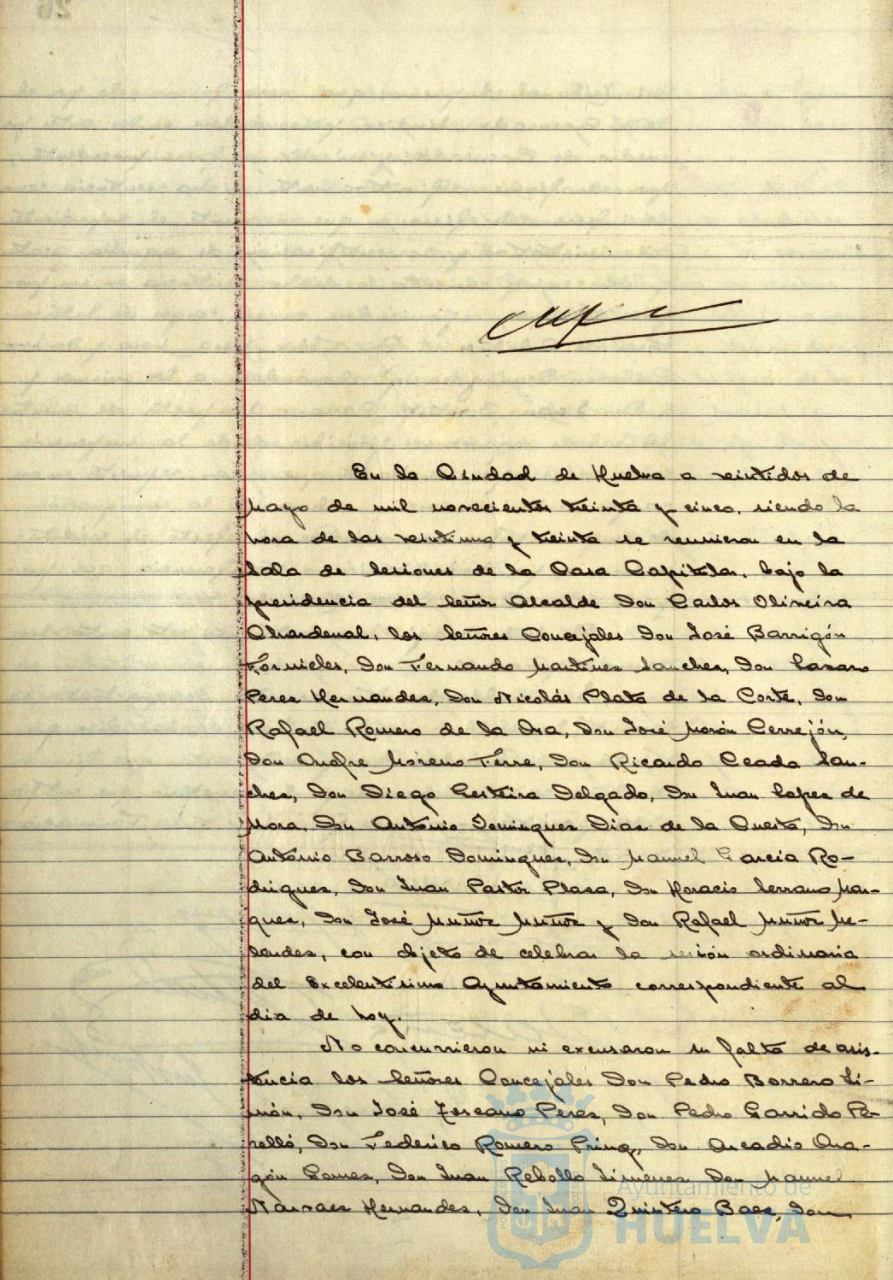 En la Ciudad de Huelva a veintidos de
Mayo de mil novecientos treinta y cinco, siendo la
hora de las veintiuna y treinta se reunieron en la
Sala de Sesiones de la Casa Capitular, bajo la
presidencia del Señor Alcalde Don Carlos Oliveira
Chardenal, los Señores Concejales Don José Barrigón
Fornieles, Don Fernando Martines Sanches, Don Casaro
Peres Hernandes, Don Nicolás Plata de la Corte, Don
Rafael Romero de la Osa, Don José Morón Cerrejón,
Don Onofre Moreno Ferre, Don Ricardo Ceada San-
ches, Don Diego Delgado, Don Juan Lopes de
Mora, Don António Domingues Dias de la Cuesta, Don
António Barroso Domingues, Don Manuel Garcia Ro-
drigues, Don Juan Pastor Plasa, Don Horacio Serrano Mar-
ques, Don José Muñoz Muñoz y Don Rafael Muñoz Me-
lendes, con objeto de celebrar la sesión ordinaria
del Excelentisimo Ayuntamiento correspondiente al
dia de hoy.
No concurrieron ni excusaron su falta de asis-
tencia los Señores Concejales Don Pedro Borrero Li-
món, Don José Toscano Peres, Don Pedro Garrido Pe-
relló, Don Federico Romero Pring, Don Arcadio Ara-
gón Gomes, Don Juan Rebollo Jimenes Don Manuel
Narvaes Hernandes, Don Juan Quintero Baez, Don
Ayuntamiento de
HUELVA